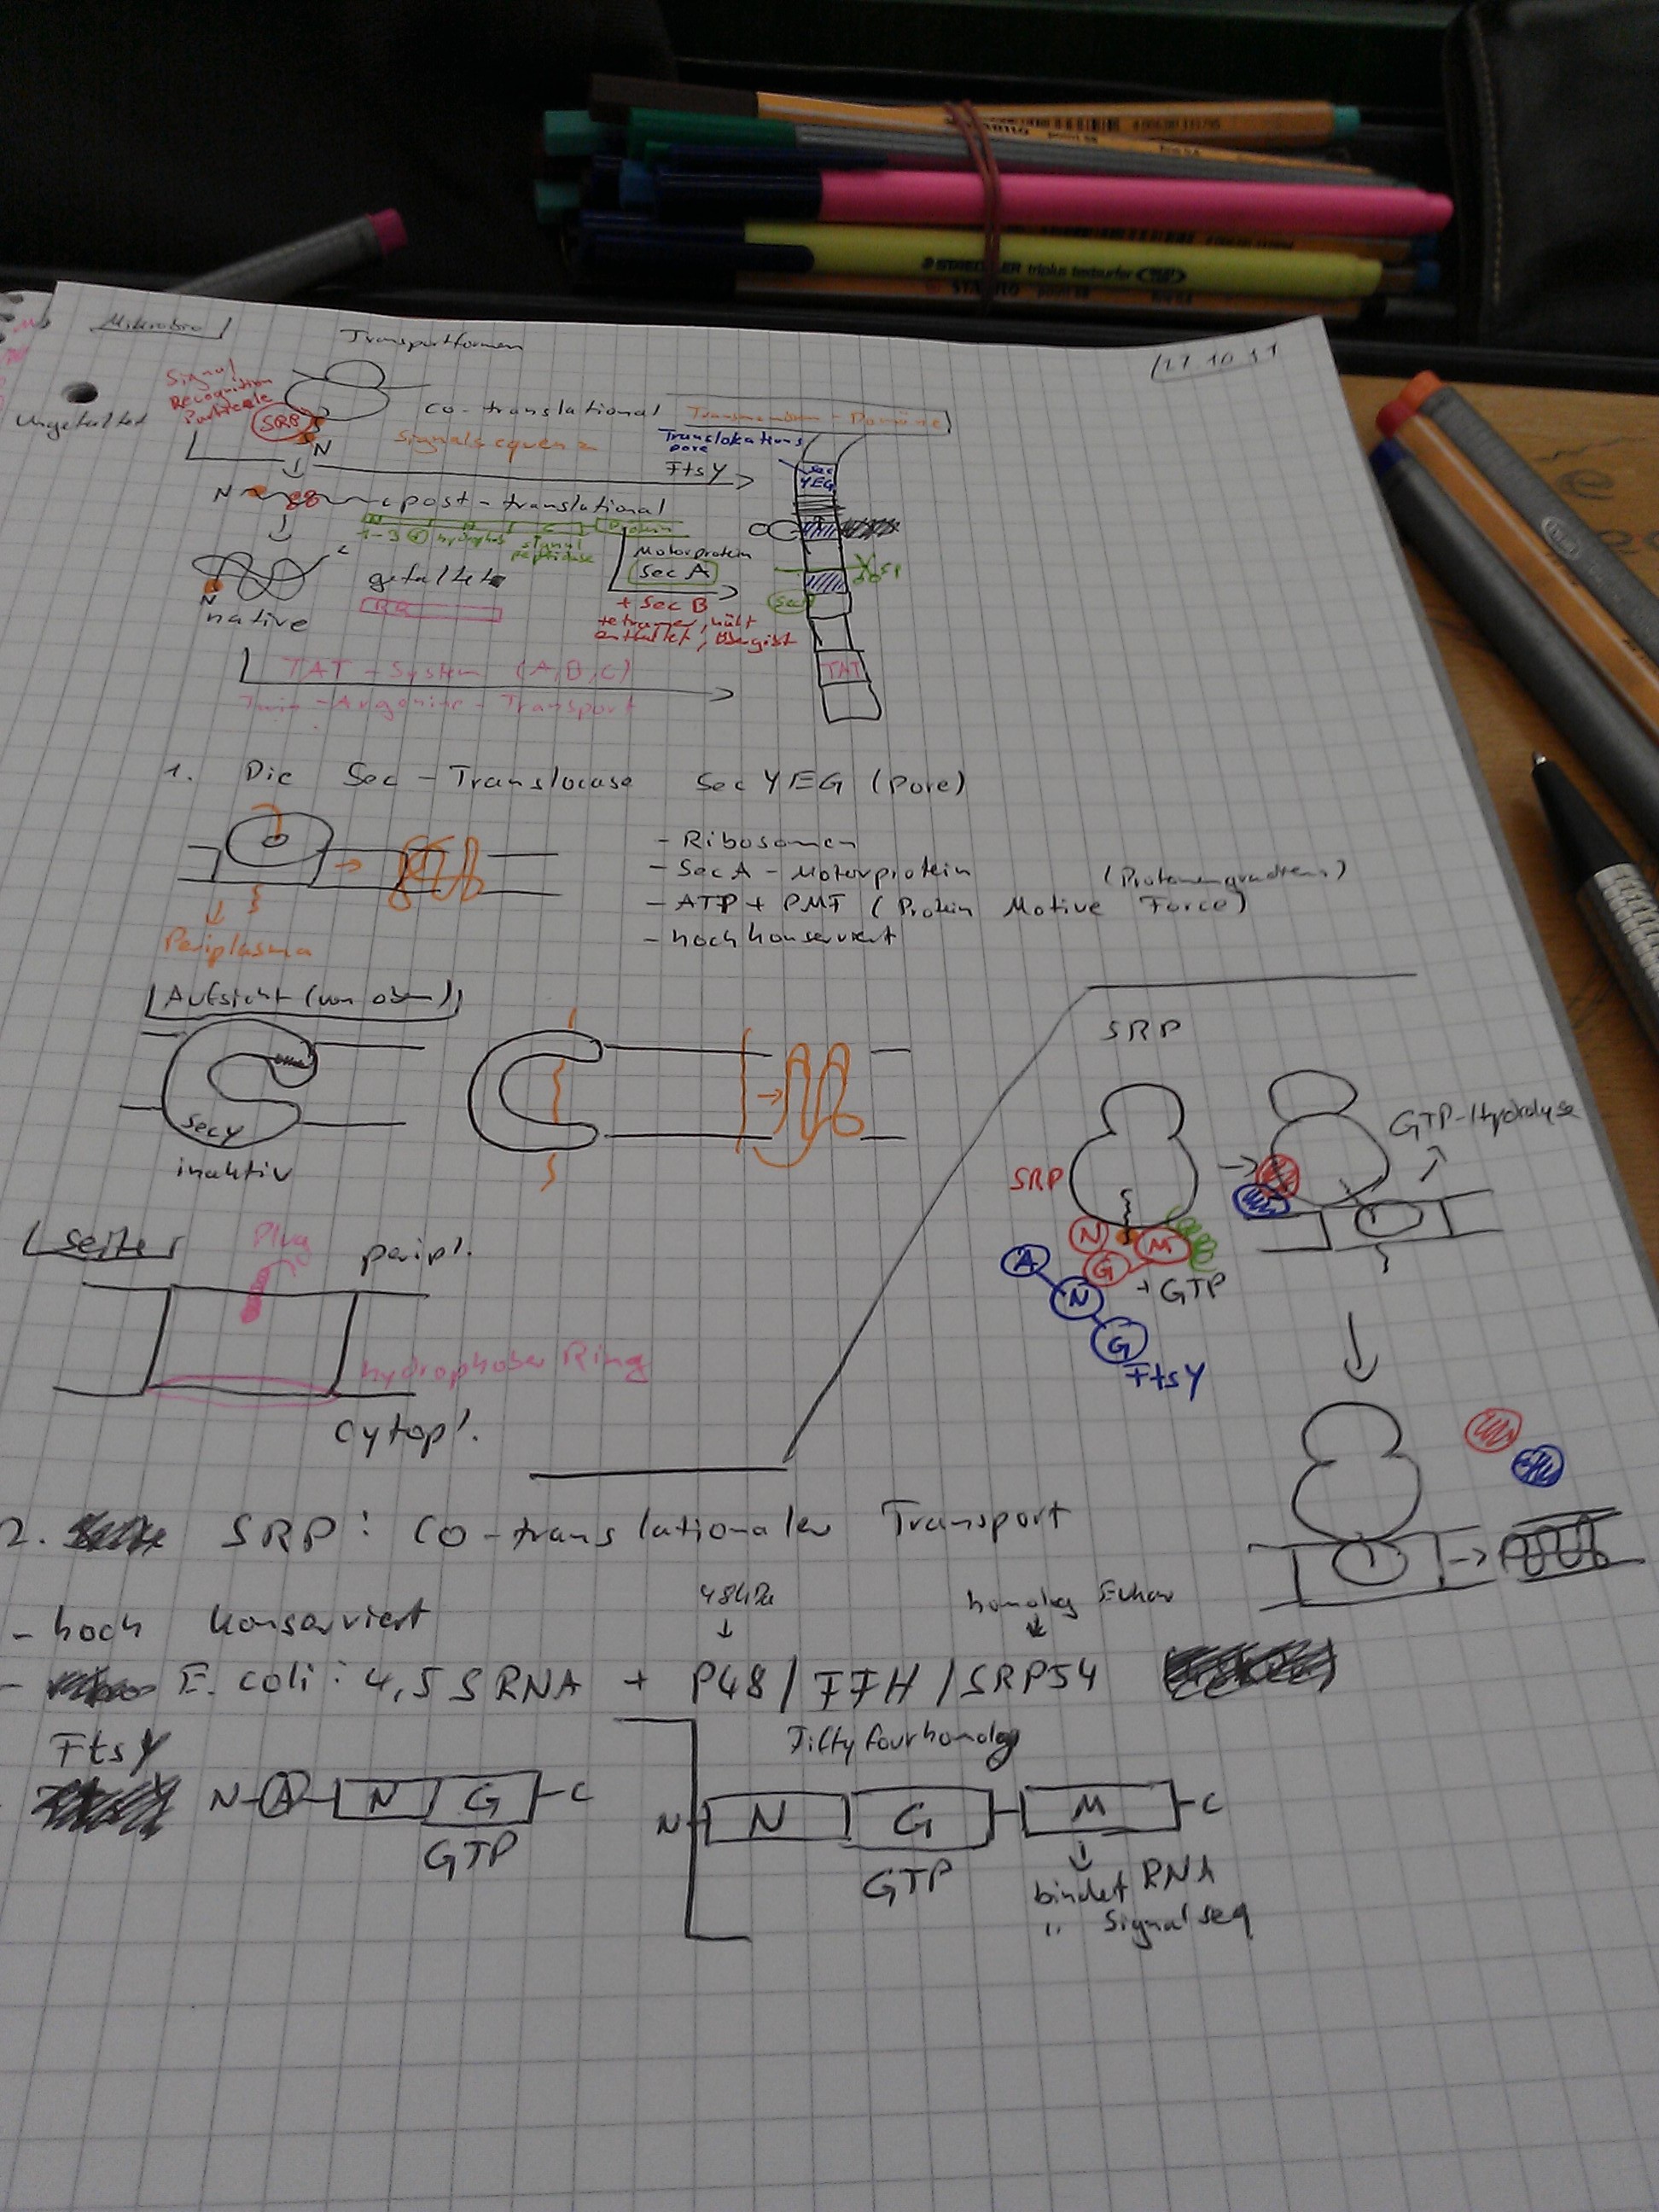 Mikrobio
Transportformen
17.10.11
Signal
Recognition
Particele
SRP
Ungefaltet
N
co-translational
Transmembran-Domäne
Signalsequenz
Translokations
pore
FtsY
Sec
YEG
N
post-translational
N
Protein
1-3 ⊕ hydrophob signal
peptidase
Motorprotein
Sec A
+ Sec B
tetramer, hält
entfaltet, übergibt
SP
gefaltet
RR
N
native
TAT-System (A,B,C)
Twin-Arginine-Transport
TAT
1. Die Sec-Translocase SecYEG (Pore)
- Ribosomen
- SecA - Motorprotein
(Protonengradient)
- ATP + PMT (Protein Motive Force)
- hoch konserviert
Periplasma
Aufsicht (von oben)
SecY
inaktiv
SRP
GTP-Hydrolyse
SRP
N
M
G
A
N
G
+ GTP
FtsY
seite
Plug
peripl.
hydrophober Ring
Cytopl.
2. SRP: Co-translationaler Transport
- hoch konserviert
48kDa
homolog Eukar
- E. coli: 4,5 S RNA + P48/FFH/SRP54
Fiftyfourhomolog
FtsY
N-A-N G-C
GTP
N N G M -C
GTP
bindet RNA
" Signalseq
STAEDTLER triplus textsurfer
STABILO point 88